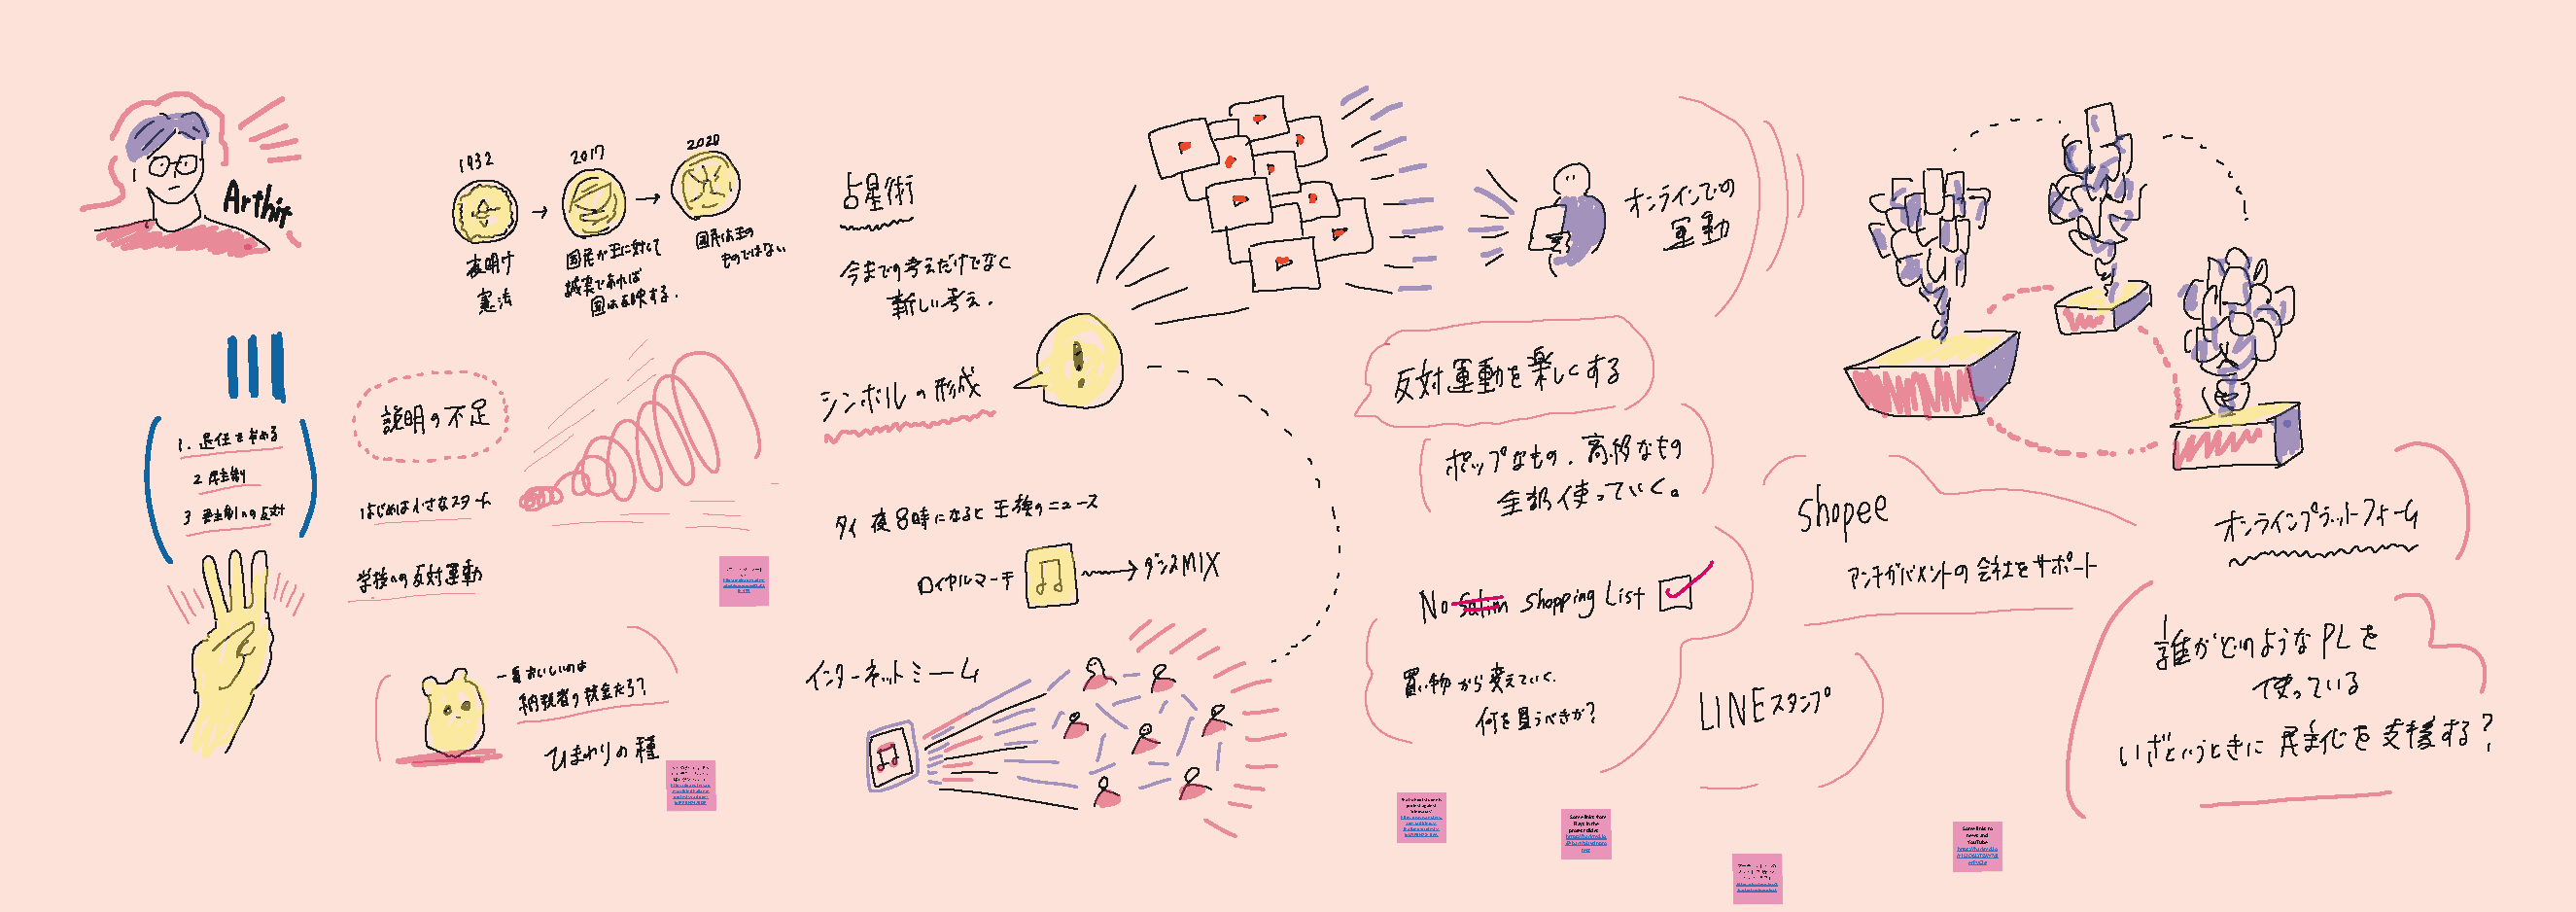 Arthit
1932
夜明け
憲法
2017
国民が王に対して
誠実であれば
国は反映する.
2020
国民は王の
ものではない
占星術
今までの考えだけでなく
新しい考え.
オンラインでの
運動
1. 退任を求める
説明の不足
はじめは小さなスタート
学校への反対運動
一番おいしいのは
納税者の税金だろ?
ひまわりの種
シンボルの形成
タイ 夜8時になると王様のニュース
ロイヤルマーチ
ダンスMIX
インターネットミーム
反対運動を楽しくする
ポップなもの、高級なもの
全部使っていく。
No Salim Shopping List
買い物から変えていく.
何を買うべきか?
LINEスタンプ
Shopee
アンチガバメントの会社をサポート
オンラインプラットフォーム
誰がどのようなPLを
使っている
いざというときに民主化を支援する?
Some links from
Some links to
news and
YouTube